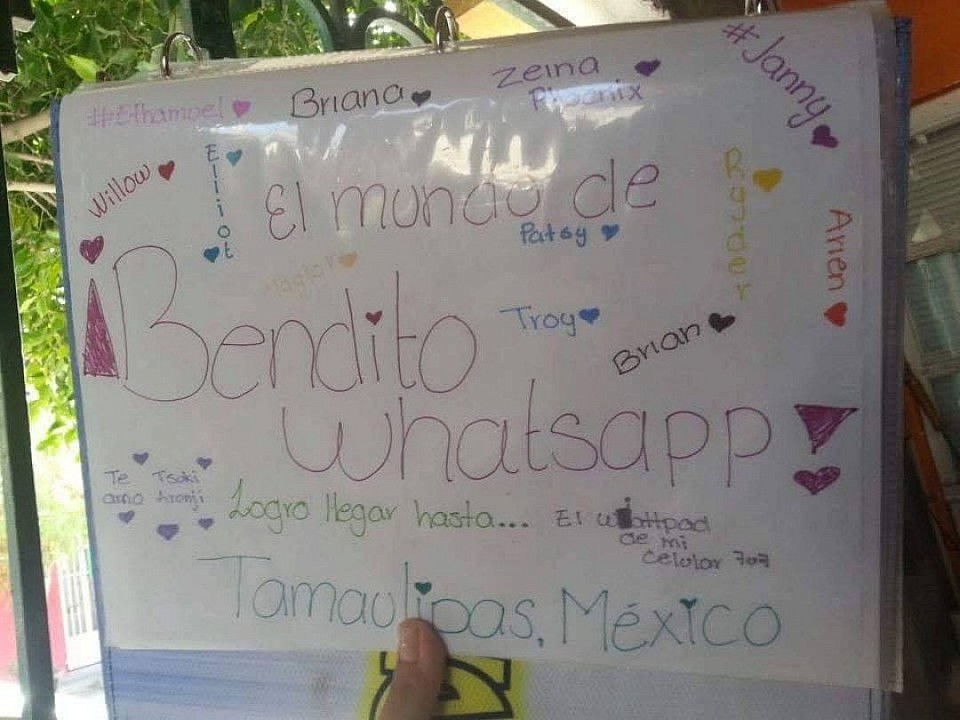 #Ethamuel
Briana
Zeina
Phoenix
#Janny
Willow
Elliot
El mundo de
Patsy
Ryder
Arien
¡Bendito
Troy
Brian
whatsapp!
Te
amo
Tsuki
Aronji
Logro llegar hasta...
El wattpad
de mi
celular 7u7
Tamaulipas, México